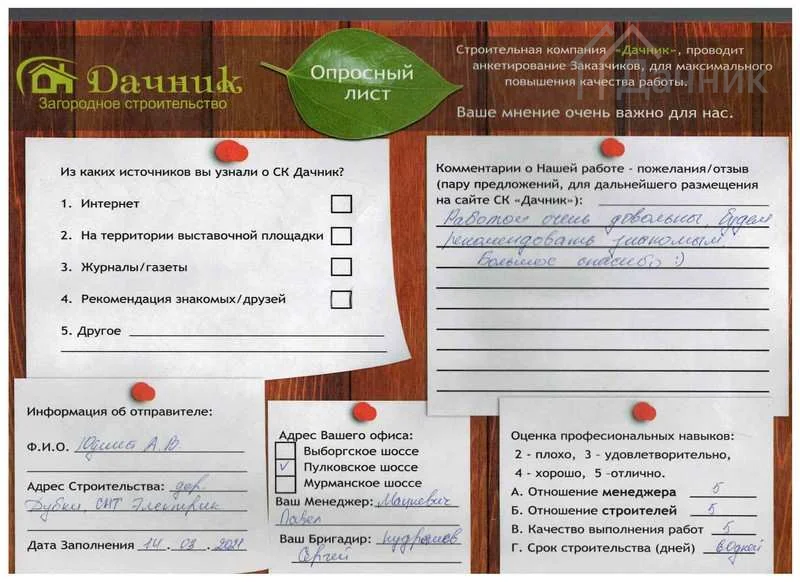 Дачник
Загородное строительство
Опросный
лист
Строительная компания «Дачник», проводит
анкетирование Заказчиков, для максимального
повышения качества работы.
Дачник
Ваше мнение очень важно для нас.
Из каких источников вы узнали о СК Дачник?
1. Интернет
2. На территории выставочной площадки
3. Журналы/газеты
4. Рекомендация знакомых/друзей
5. Другое
Комментарии о Нашей работе - пожелания/отзыв
(пару предложений, для дальнейшего размещения
на сайте СК «Дачник»):
Работой очень довольны, будем
рекомендовать знакомым
Большое спасибо :)
Информация об отправителе:
Ф.И.О. А.В.
Адрес Строительства: дер.
Дубки, СНТ Электрик
Дата Заполнения 14 . 03 . 2021
Адрес Вашего офиса:
Выборгское шоссе
✓ Пулковское шоссе
Мурманское шоссе
Ваш Менеджер: Мацкевич
Павел
Ваш Бригадир:
Сергей
Оценка професиональных навыков:
2 - плохо, 3 - удовлетворительно,
4 - хорошо, 5 -отлично.
А. Отношение менеджера 5
Б. Отношение строителей 5
В. Качество выполнения работ 5
Г. Срок строительства (дней)